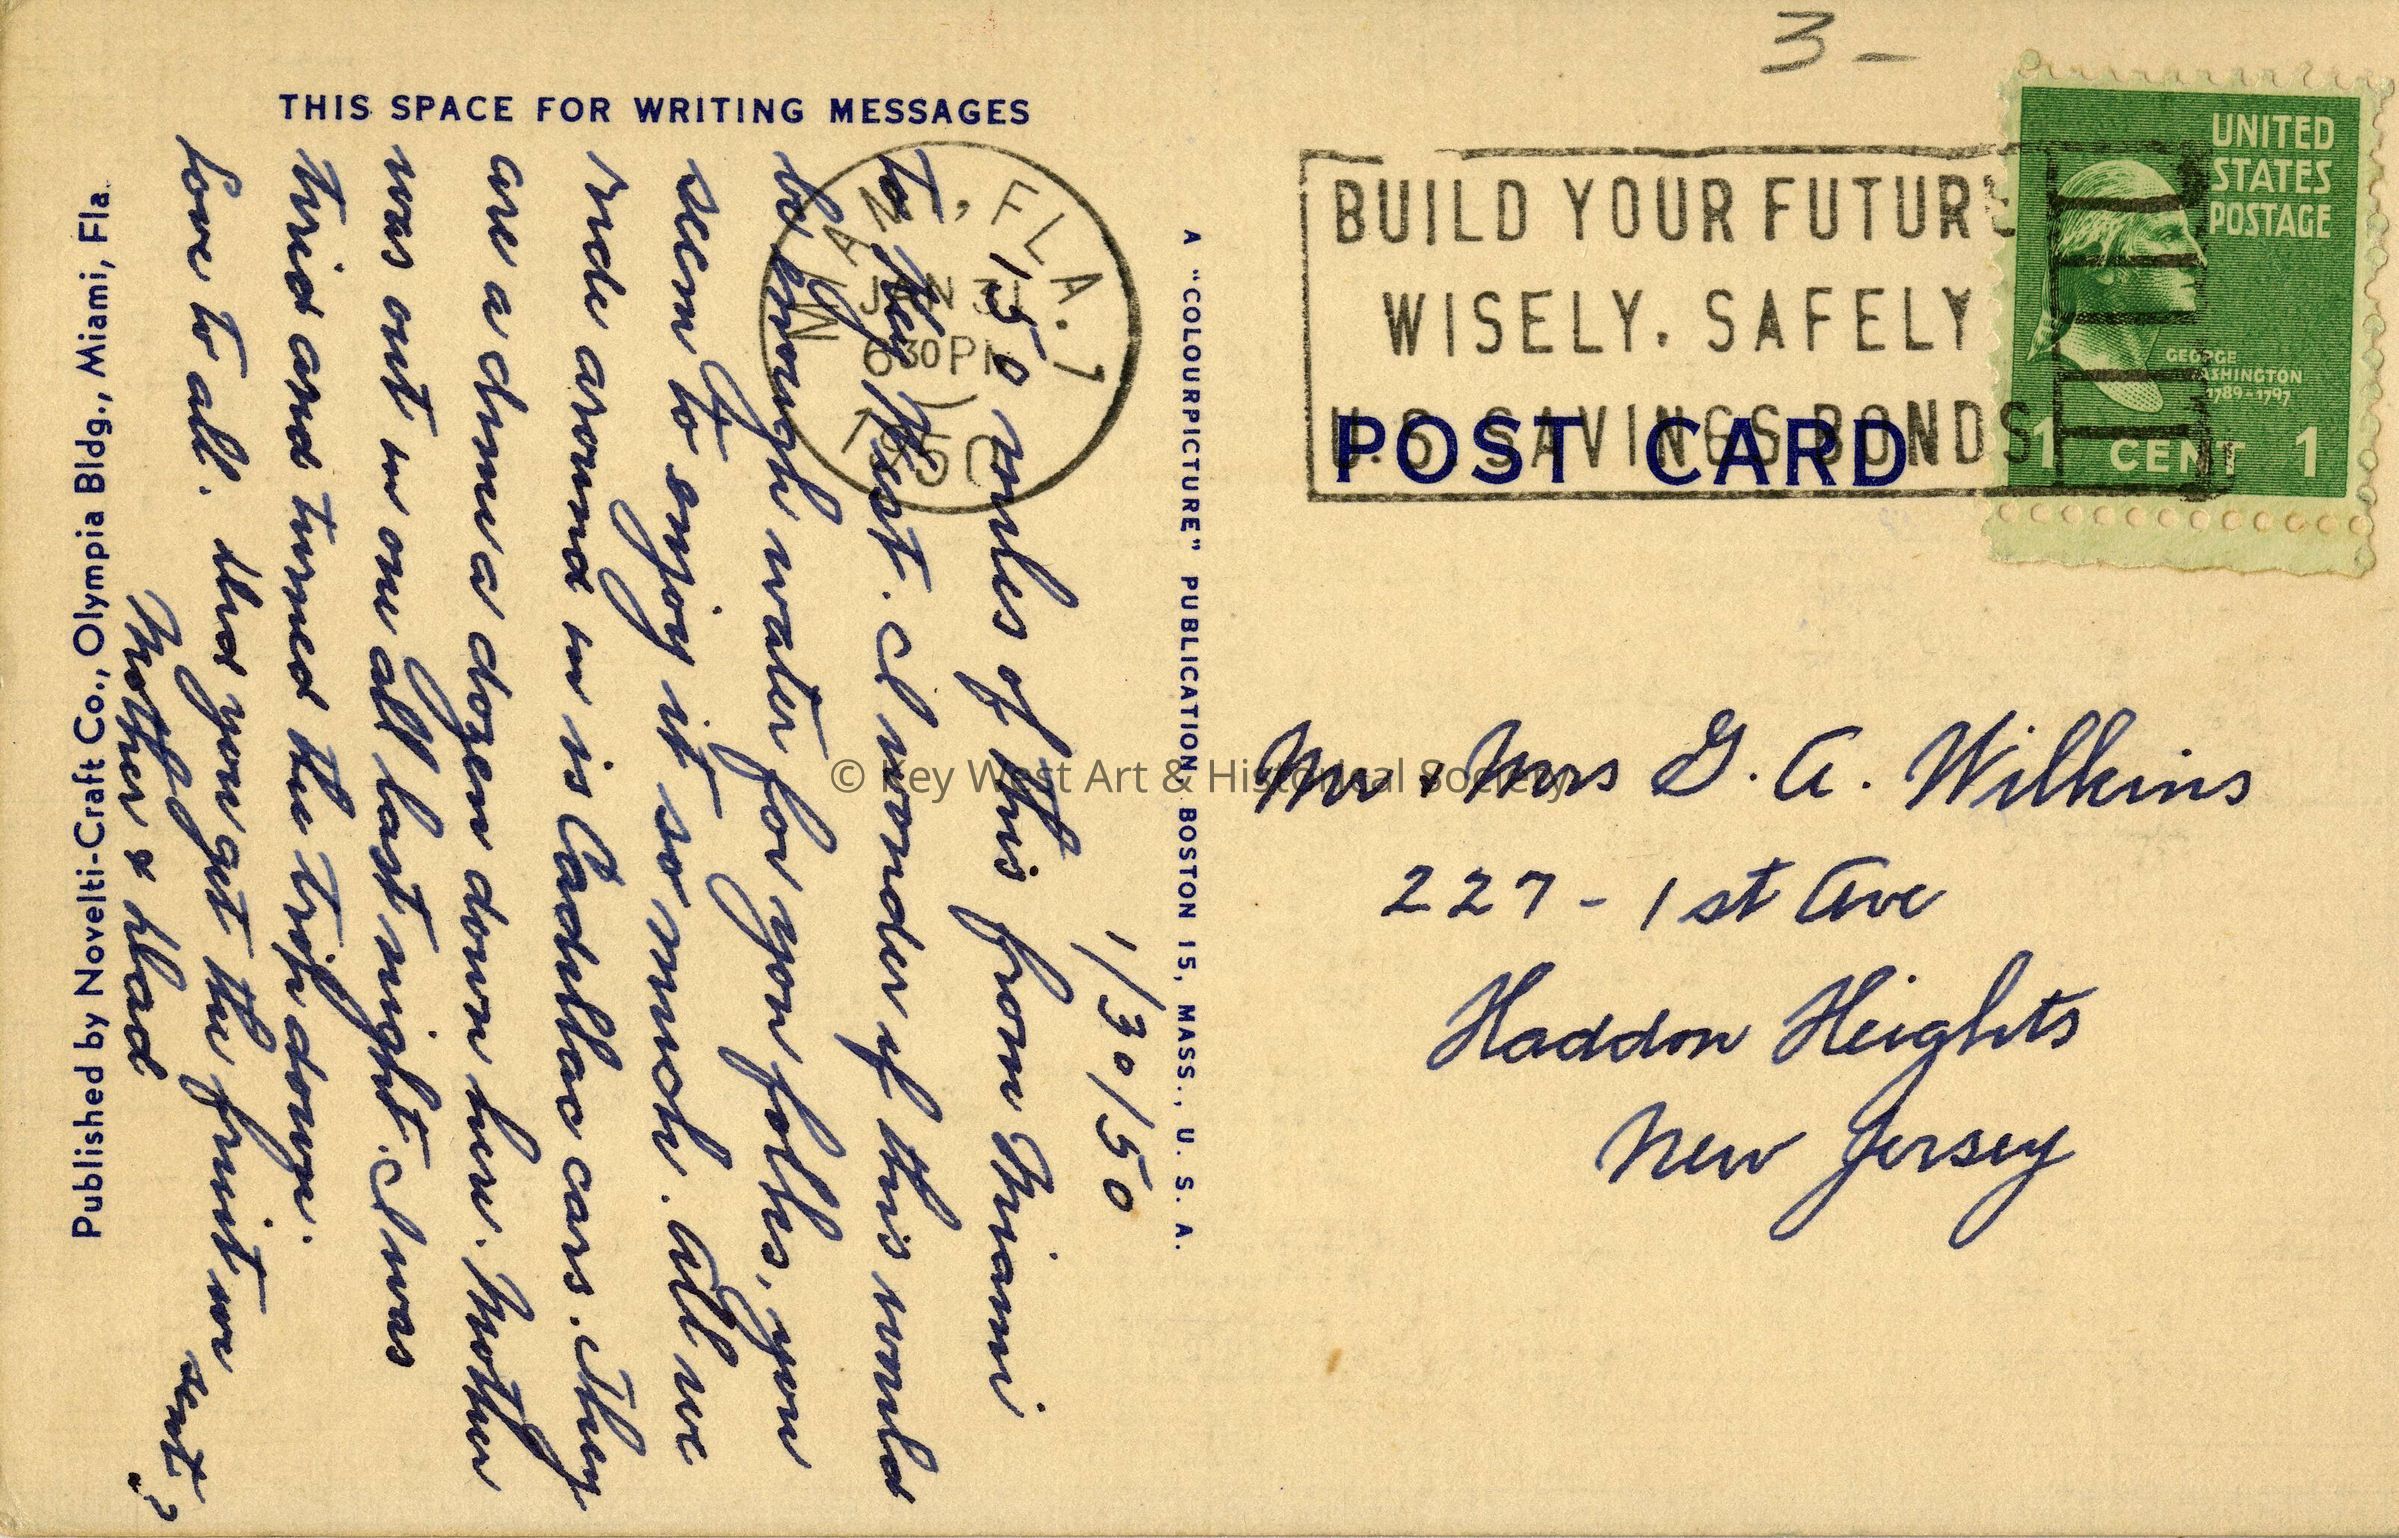 THIS SPACE FOR WRITING MESSAGES
1/30/50
150 miles of this from Miami
to Key West. I wonder if this would
be enough water for you folks, you
seem to enjoy it so much. All we
ride around in is Cadillac cars. They
are a dime a dozen down here. Mother
was out in one all last night. I was
tired and turned the trip down.
Love to all. Did you get the fruit we sent?
Mother & Dad
Published by Novelti-Craft Co., Olympia Bldg., Miami, Fla.
A "COLOURPICTURE" PUBLICATION, BOSTON 15, MASS., U. S. A.
MIAMI, FLA. 1
JAN 31
630 PM
1950
3 –
BUILD YOUR FUTURE
WISELY. SAFELY
U.S. SAVINGS BONDS
POST CARD
UNITED
STATES
POSTAGE
GEORGE
WASHINGTON
1789-1797
1 CENT 1
Mr & Mrs G. A. Wilkins
227 - 1st Ave
Haddon Heights
New Jersey
© Key West Art & Historical Society